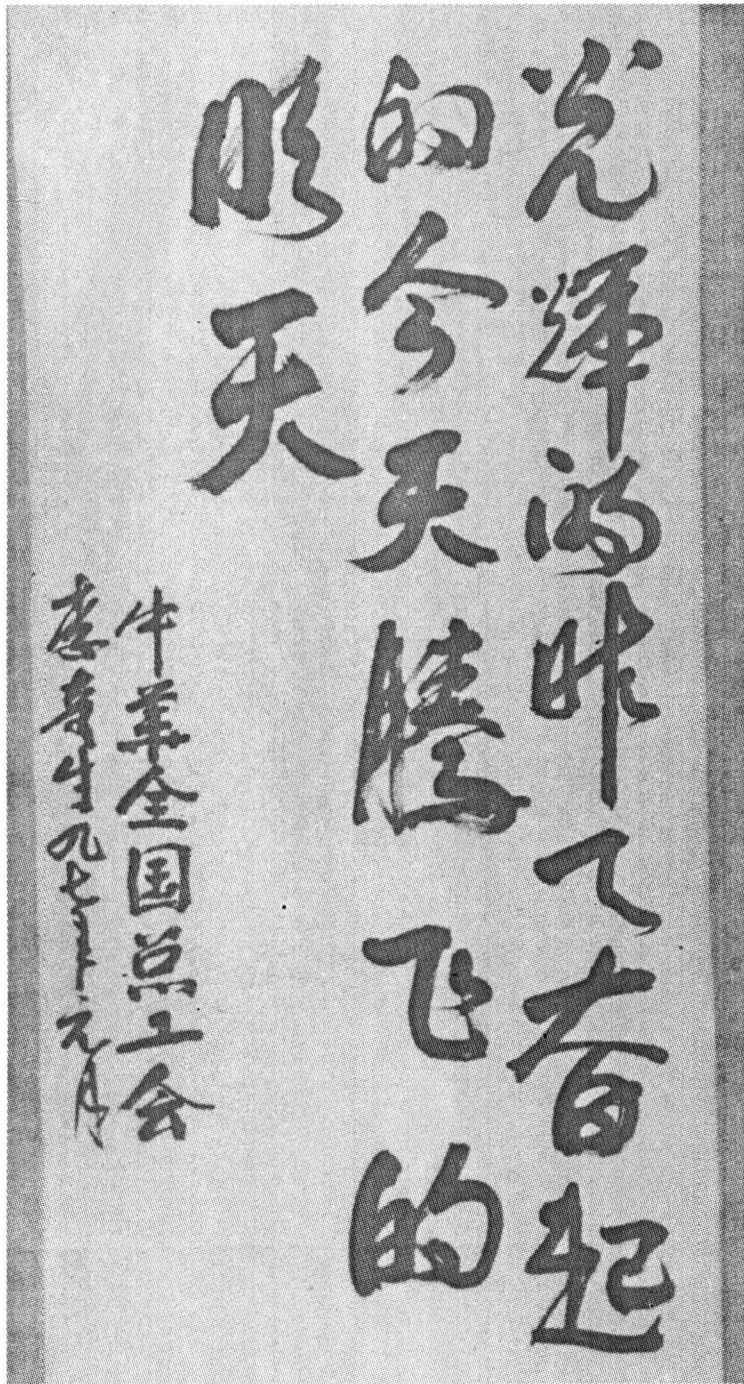 光辉的昨天奋起
的今天腾飞的
明天
中华全国总工会
李奇生九七年元月